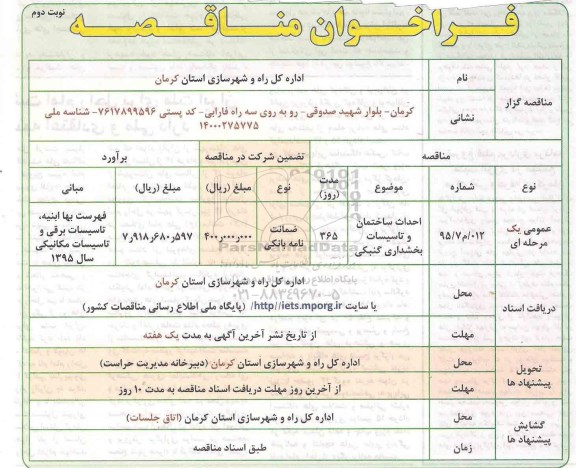 نوبت دوم
فراخوان مناقصه
مناقصه گزار
نام
اداره کل راه و شهرسازی استان کرمان
نشانی
کرمان- بلوار شهید صدوقی- رو به روی سه راه فارابی- کد پستی ۷۶۱۷۸۹۹۵۹۶- شناسه ملی
۱۴۰۰۰۲۷۵۷۷۵
مناقصه
تضمین شرکت در مناقصه
برآورد
نوع
شماره
موضوع
مدت
(روز)
نوع
مبلغ (ریال)
مبلغ (ریال)
مبانی
عمومی یک
مرحله ای
۹۵/۷/م/۰۱۲
احداث ساختمان
و تاسیسات
بخشداری گنبکی
۳۶۵
ضمانت
نامه بانکی
۴۰۰ر۰۰۰ر۰۰۰
۷ر۹۱۸ر۶۸۰ر۵۹۷
فهرست بها ابنیه،
تاسیسات برقی و
تاسیسات مکانیکی
سال ۱۳۹۵
دریافت اسناد
محل
اداره کل راه و شهرسازی استان کرمان
یا سایت http//iets.mporg.ir/ (پایگاه ملی اطلاع رسانی مناقصات کشور)
مهلت
از تاریخ نشر آخرین آگهی به مدت یک هفته
تحویل
پیشنهاد ها
محل
اداره کل راه و شهرسازی استان کرمان (دبیرخانه مدیریت حراست)
مهلت
از آخرین روز مهلت دریافت اسناد مناقصه به مدت ۱۰ روز
گشایش
پیشنهاد ها
محل
اداره کل راه و شهرسازی استان کرمان (اتاق جلسات)
زمان
طبق اسناد مناقصه
ParsNamadData
۰۲۱-۸۸۳۴۹۶۷۰-۵